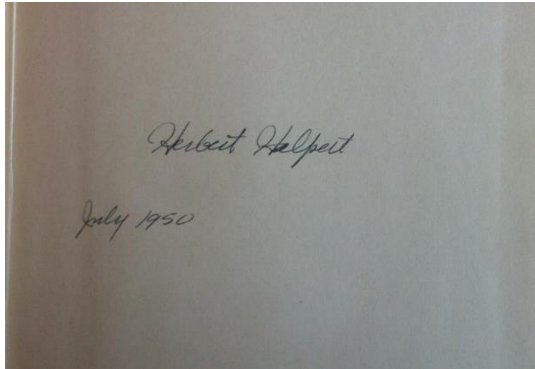 Herbert Halpert
July 1950